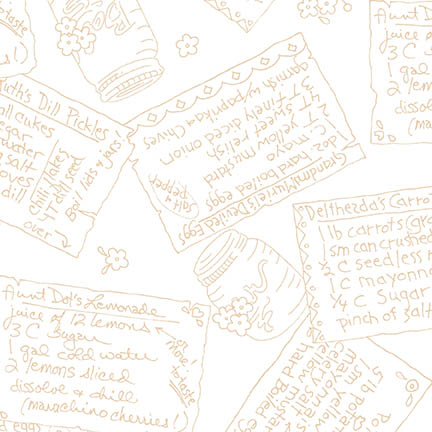 to taste
Aunt Do
juice o
3 C Su
1 gal
2 lemo
dissol
(mara
uth's Dill Pickles
all cukes
egar
water
salt
oves
dill
chili flakes
1 T dill seed
Boil lids & jars!
over
Grandma Muriel's Deviled Eggs
1 doz. hard boiled eggs
C mayo
T yellow mustard
T sweet relish
T finely dice onion
garnish w/ paprika & chives
Salt &
pepper
Deltherda's Carro
1 lb carrots (gra
sm can crushed
C seedless r
C mayonna
1/4 C Sugar
pinch of salt
Aunt Dot's Lemonade
juice of 12 lemons
3 C Sugar
1 gal cold water
2 lemons sliced
dissolve & chill
(maraschino cherries!)
more!
to taste
eggs
5 lb pota
hard Boiled